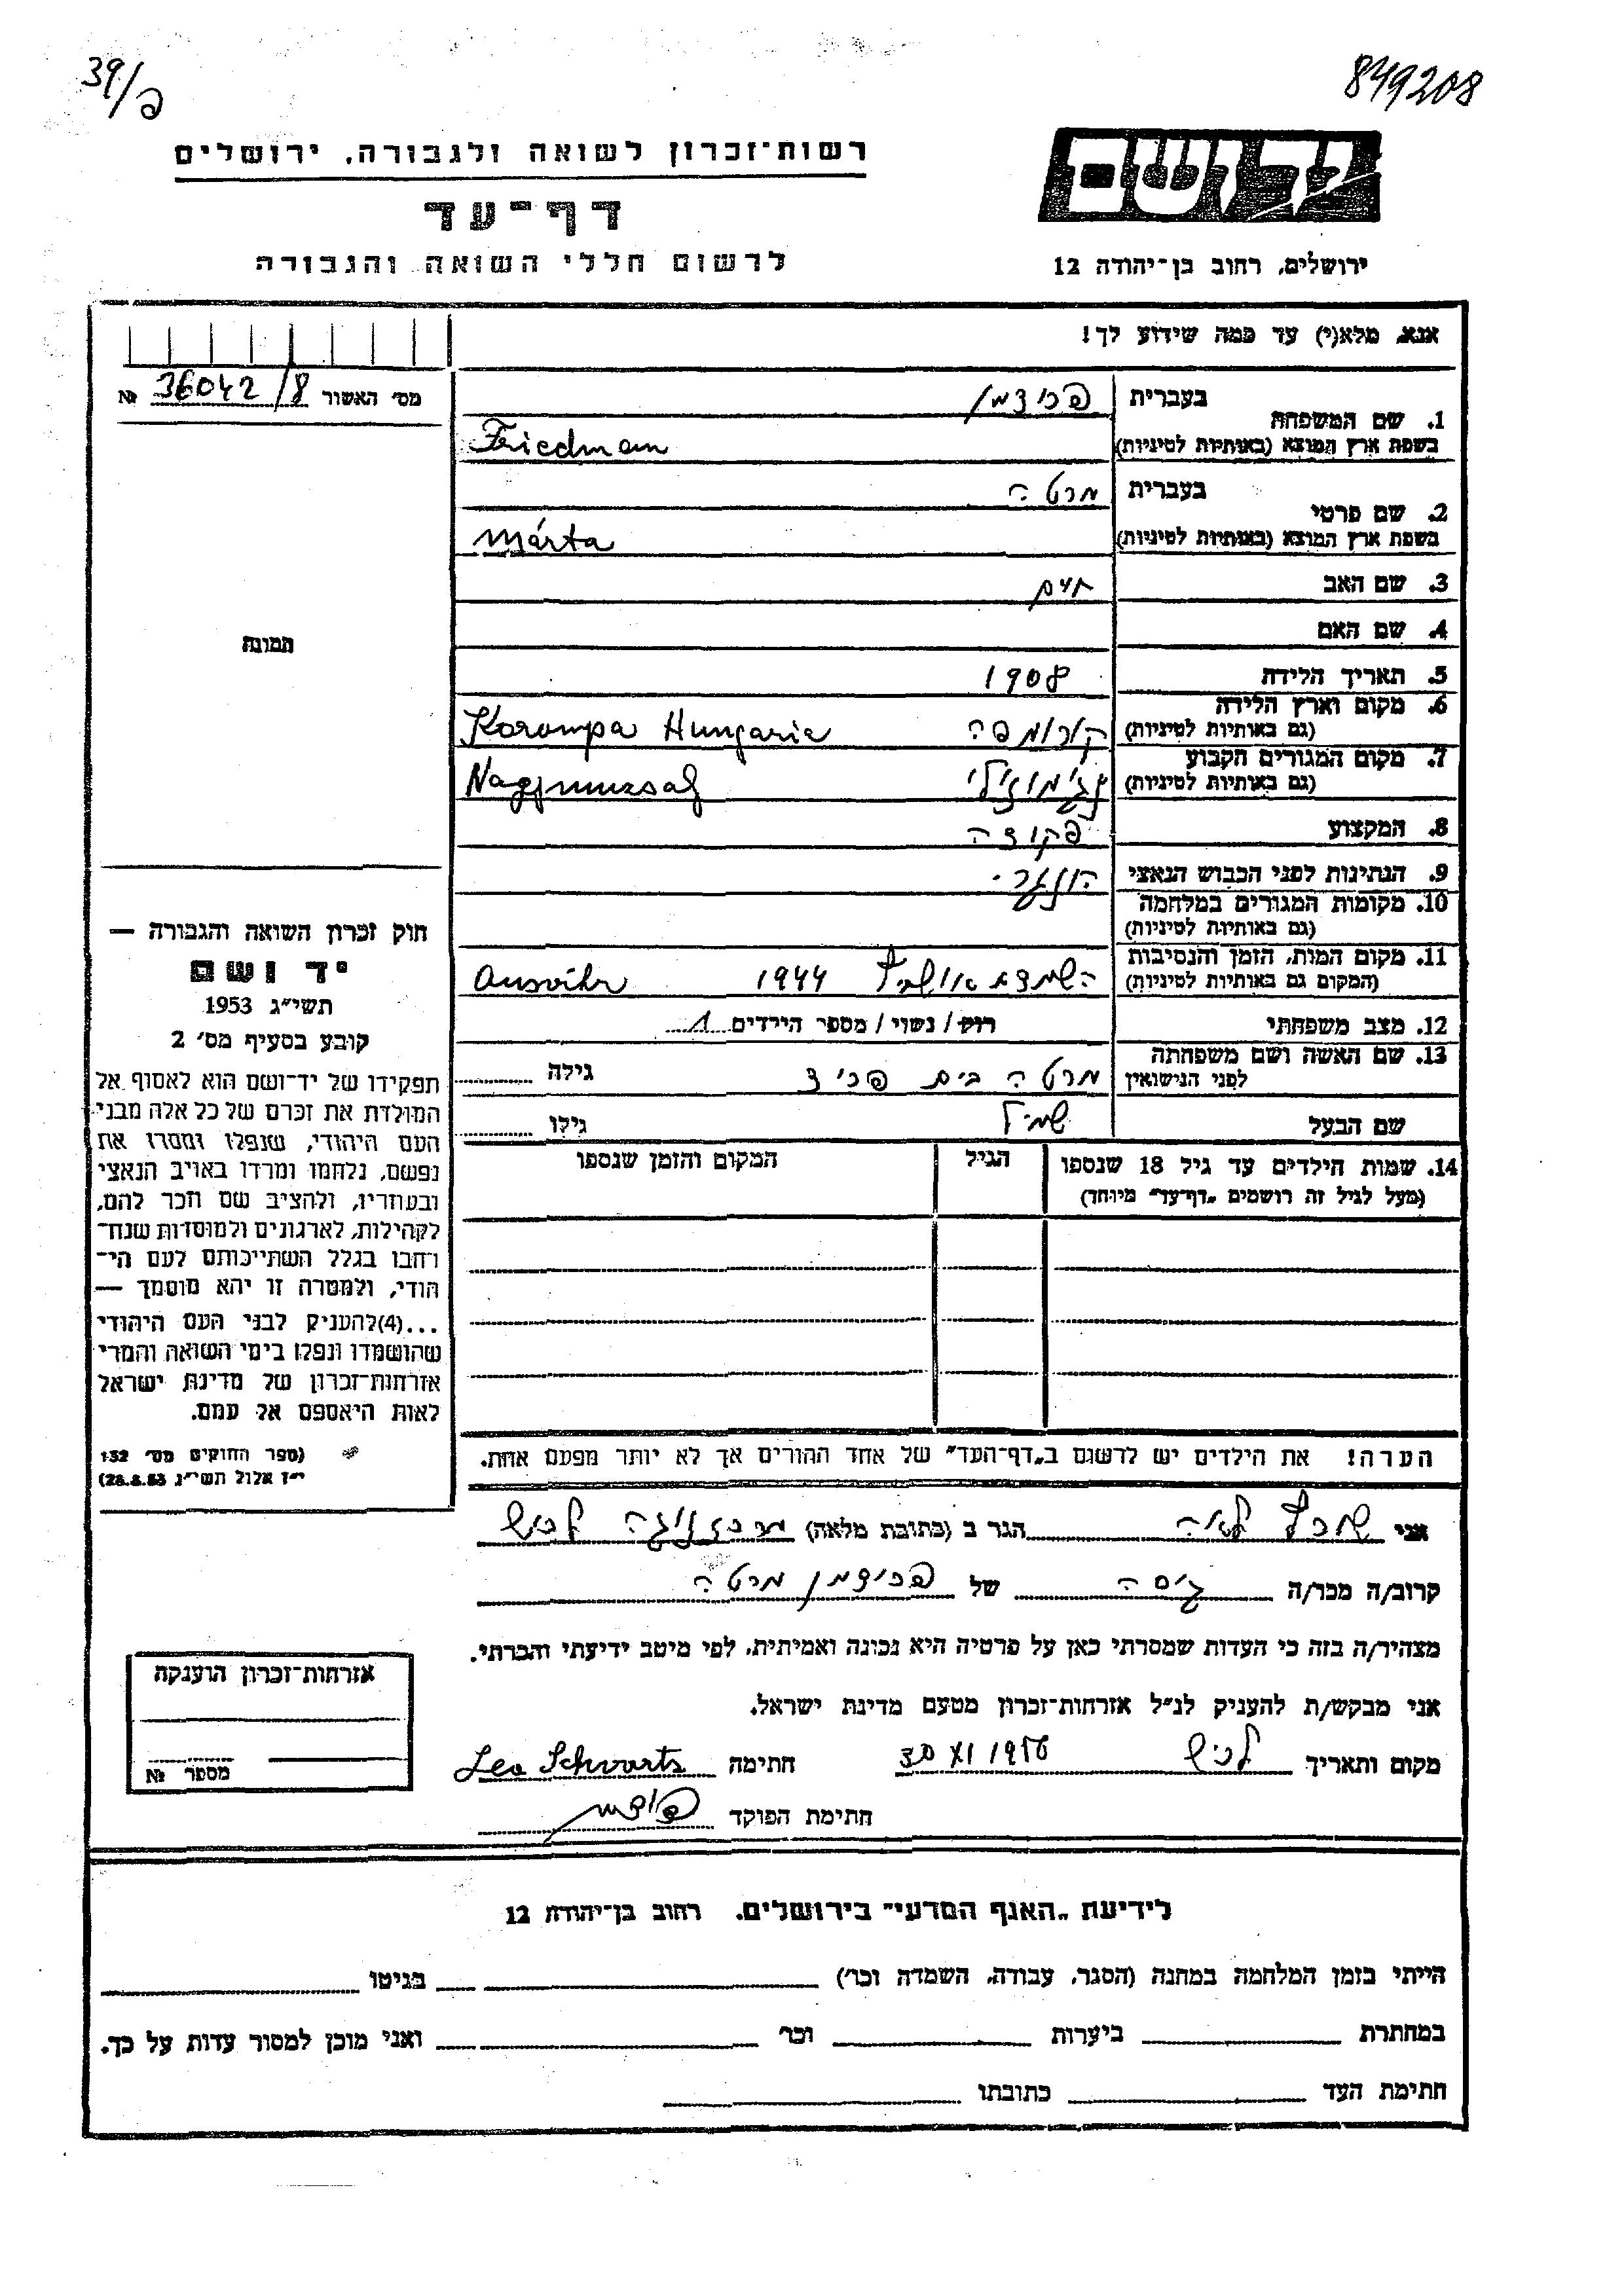 39/פ
849208
רשות-זכרון לשואה ולגבורה, ירושלים
דף-עד
לרשום חללי השואה והגבורה
יד ושם
ירושלים, רחוב בן-יהודה 12
אנא, מלא(י) עד כמה שידוע לך!
מס' האשור 36042/8 №
1. שם המשפחה
בעברית פרידמן
בשפת ארץ המוצא (באותיות לטיניות) Friedman
2. שם פרטי
בעברית מרטה
בשפת ארץ המוצא (באותיות לטיניות) Márta
3. שם האב חיים
4. שם האם
5. תאריך הלידה 1908
6. מקום וארץ הלידה
(גם באותיות לטיניות) קורומפה Korompa Hungaria
7. מקום המגורים הקבוע
(גם באותיות לטיניות)
8. המקצוע פקידה
9. הנתינות לפני הכבוש הנאצי הונגרי
10. מקומות המגורים במלחמה
(גם באותיות לטיניות)
11. מקום המות, הזמן והנסיבות
(המקום גם באותיות לטיניות) 1944 Ausvihr
12. מצב משפחתי רוק / נשוי / מספר הילדים 1
13. שם האשה ושם משפחתה
לפני הנישואין מרטה בית פריד גילה
שם הבעל גילו
14. שמות הילדים עד גיל 18 שנספו
(מעל לגיל זה רושמים „דף-עד" מיוחד)
הגיל
המקום והזמן שנספו
הערה! את הילדים יש לרשום ב„דף-העד" של אחד ההורים אך לא יותר מפעם אחת.
תמונה
חוק זכרון השואה והגבורה —
יד ושם
תשי"ג 1953
קובע בסעיף מס' 2
תפקידו של יד-ושם הוא לאסוף אל
המולדת את זכרם של כל אלה מבני
העם היהודי, שנפלו ומסרו את
נפשם, נלחמו ומרדו באויב הנאצי
ובעוזריו, ולהציב שם וזכר להם,
לקהילות, לארגונים ולמוסדות שנח-
רבו בגלל השתייכותם לעם הי-
הודי, ולמטרה זו יהא מוסמך —
...(4)להעניק לבני העם היהודי
שהושמדו ונפלו בימי השואה והמרי
אזרחות-זכרון של מדינת ישראל
לאות היאספם אל עמם.
(ספר החוקים מס' 132
י"ז אלול תשי"ג 28.8.53)
אני שורץ לאה הגר ב (כתובת מלאה) לכיש
קרוב/ה מכר/ה גיסה של פרידמן מרטה
מצהיר/ה בזה כי העדות שמסרתי כאן על פרטיה היא נכונה ואמיתית, לפי מיטב ידיעתי והכרתי.
אני מבקש/ת להעניק לנ"ל אזרחות-זכרון מטעם מדינת ישראל.
מקום ותאריך לכיש 30 XI 1956 חתימה Lea Schvartz
חתימת הפוקד
אזרחות-זכרון הוענקה
מספר №
לידיעת „האגף המדעי" בירושלים, רחוב בן-יהודה 12
הייתי בזמן המלחמה במחנה (הסגר, עבודה, השמדה וכו') בגיטו
במחתרת ביערות וכו' ואני מוכן למסור עדות על כך.
חתימת העד כתובתו